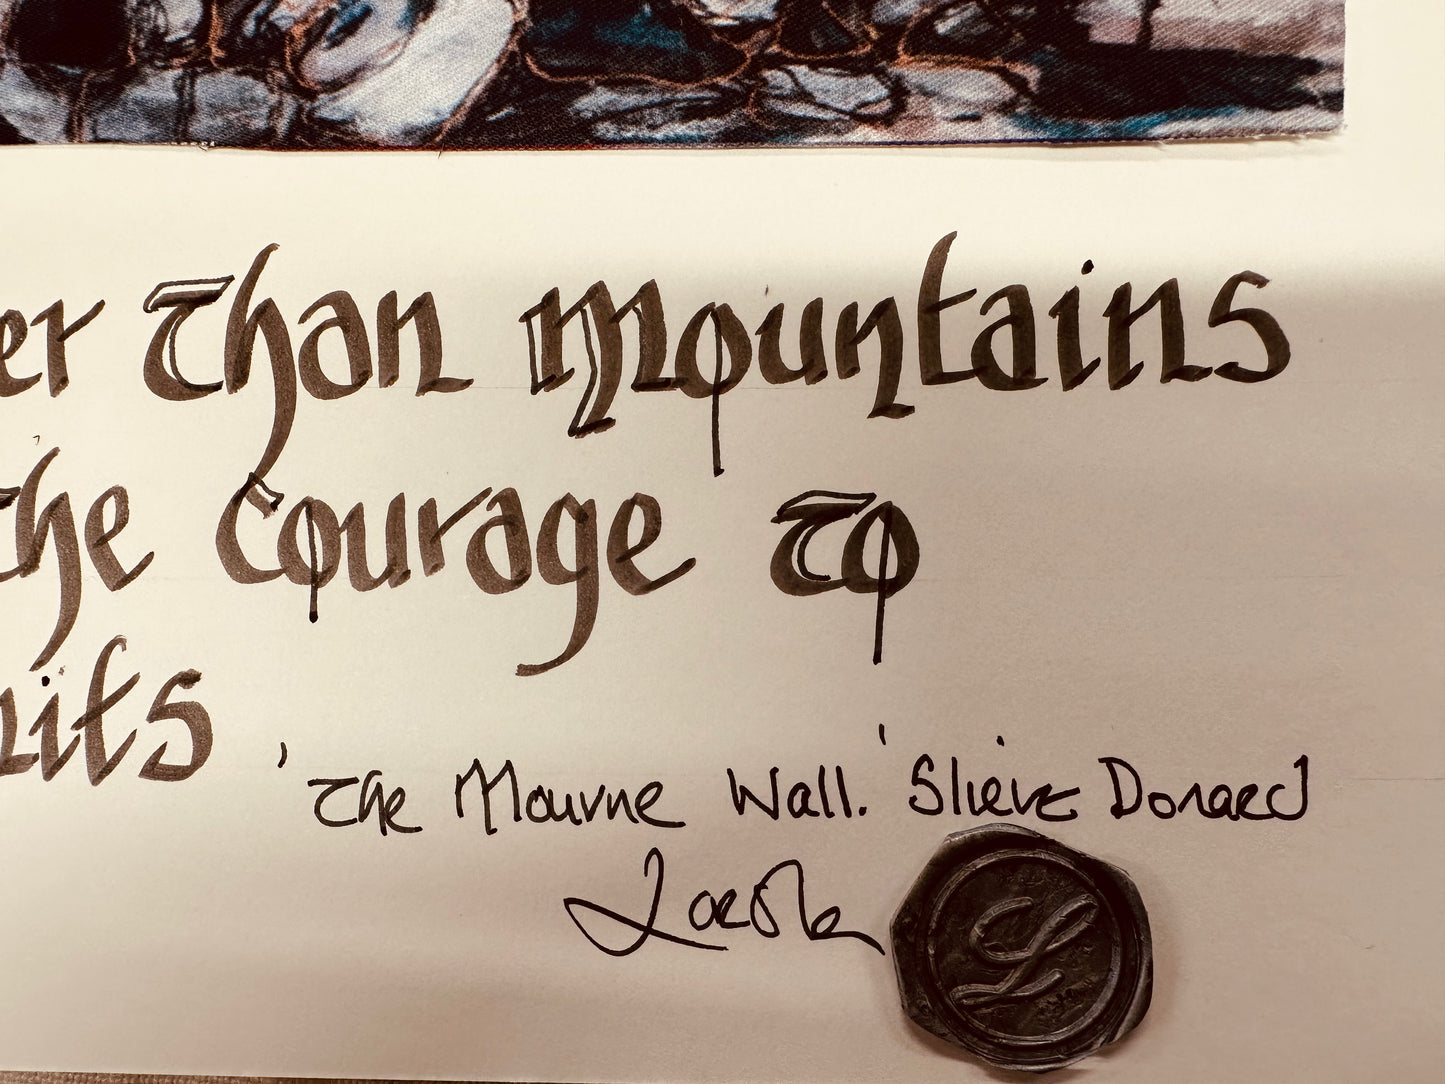 er Than Mountains
the Courage To
its
'The Mourne Wall.' Slieve Donard
L